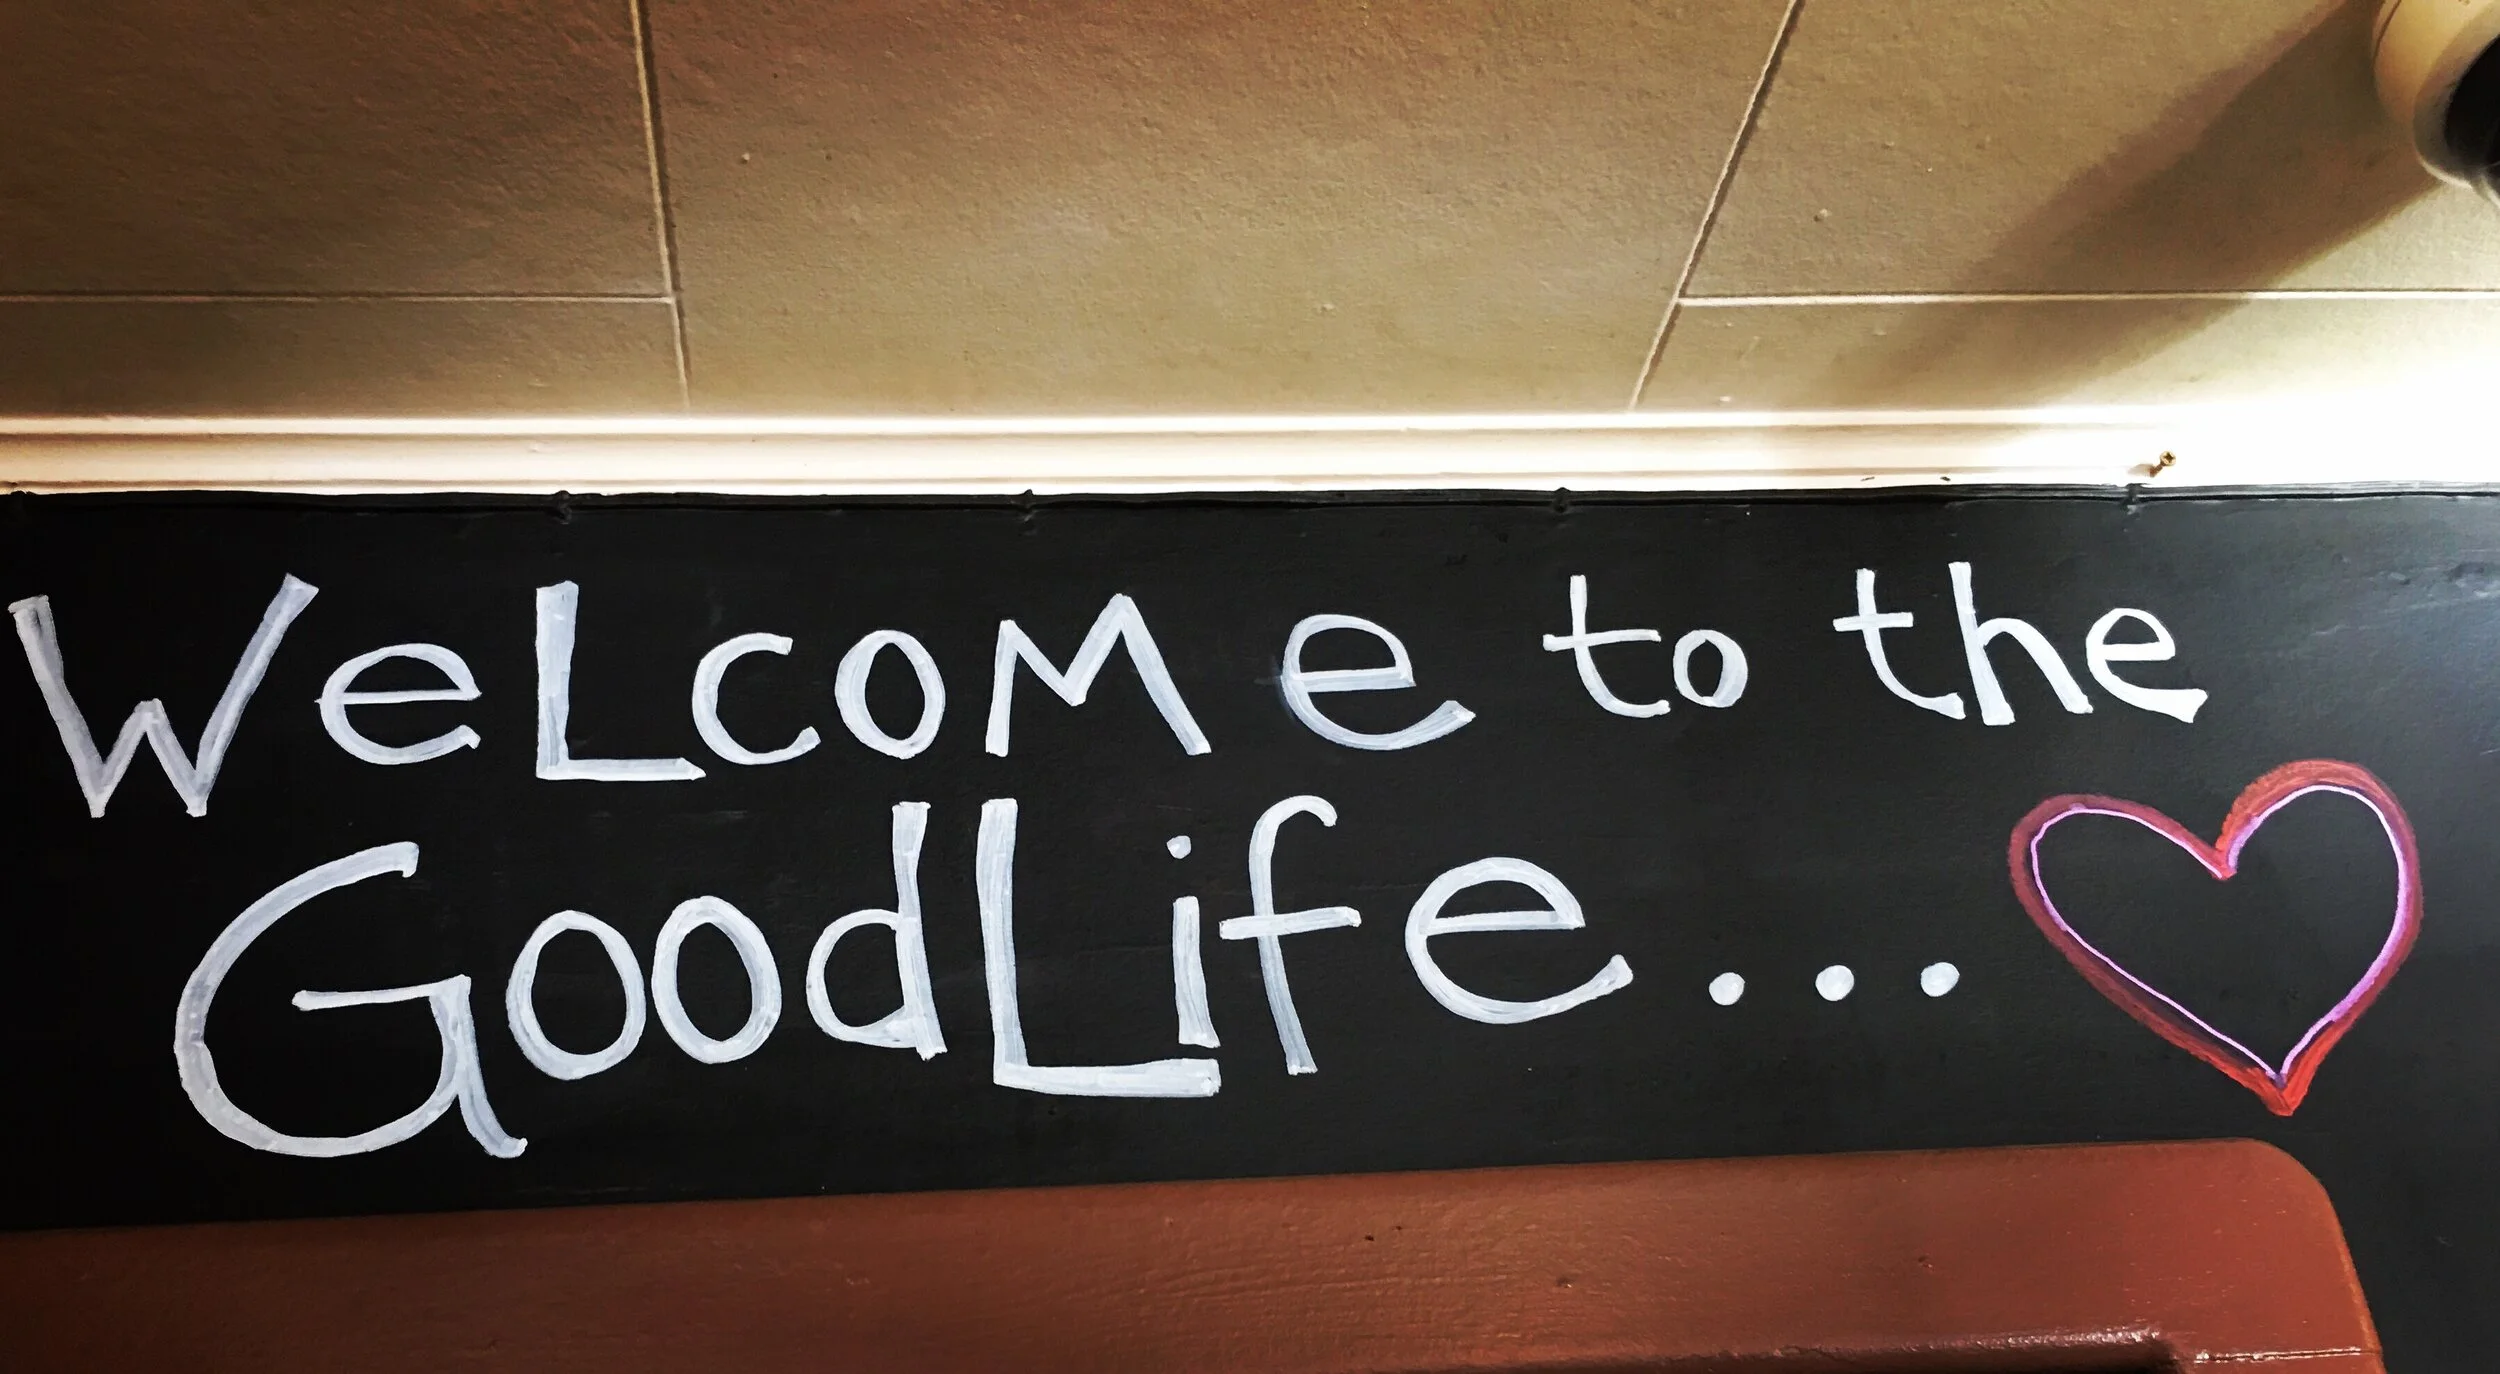 WeLcoMe to the
GoodLife...